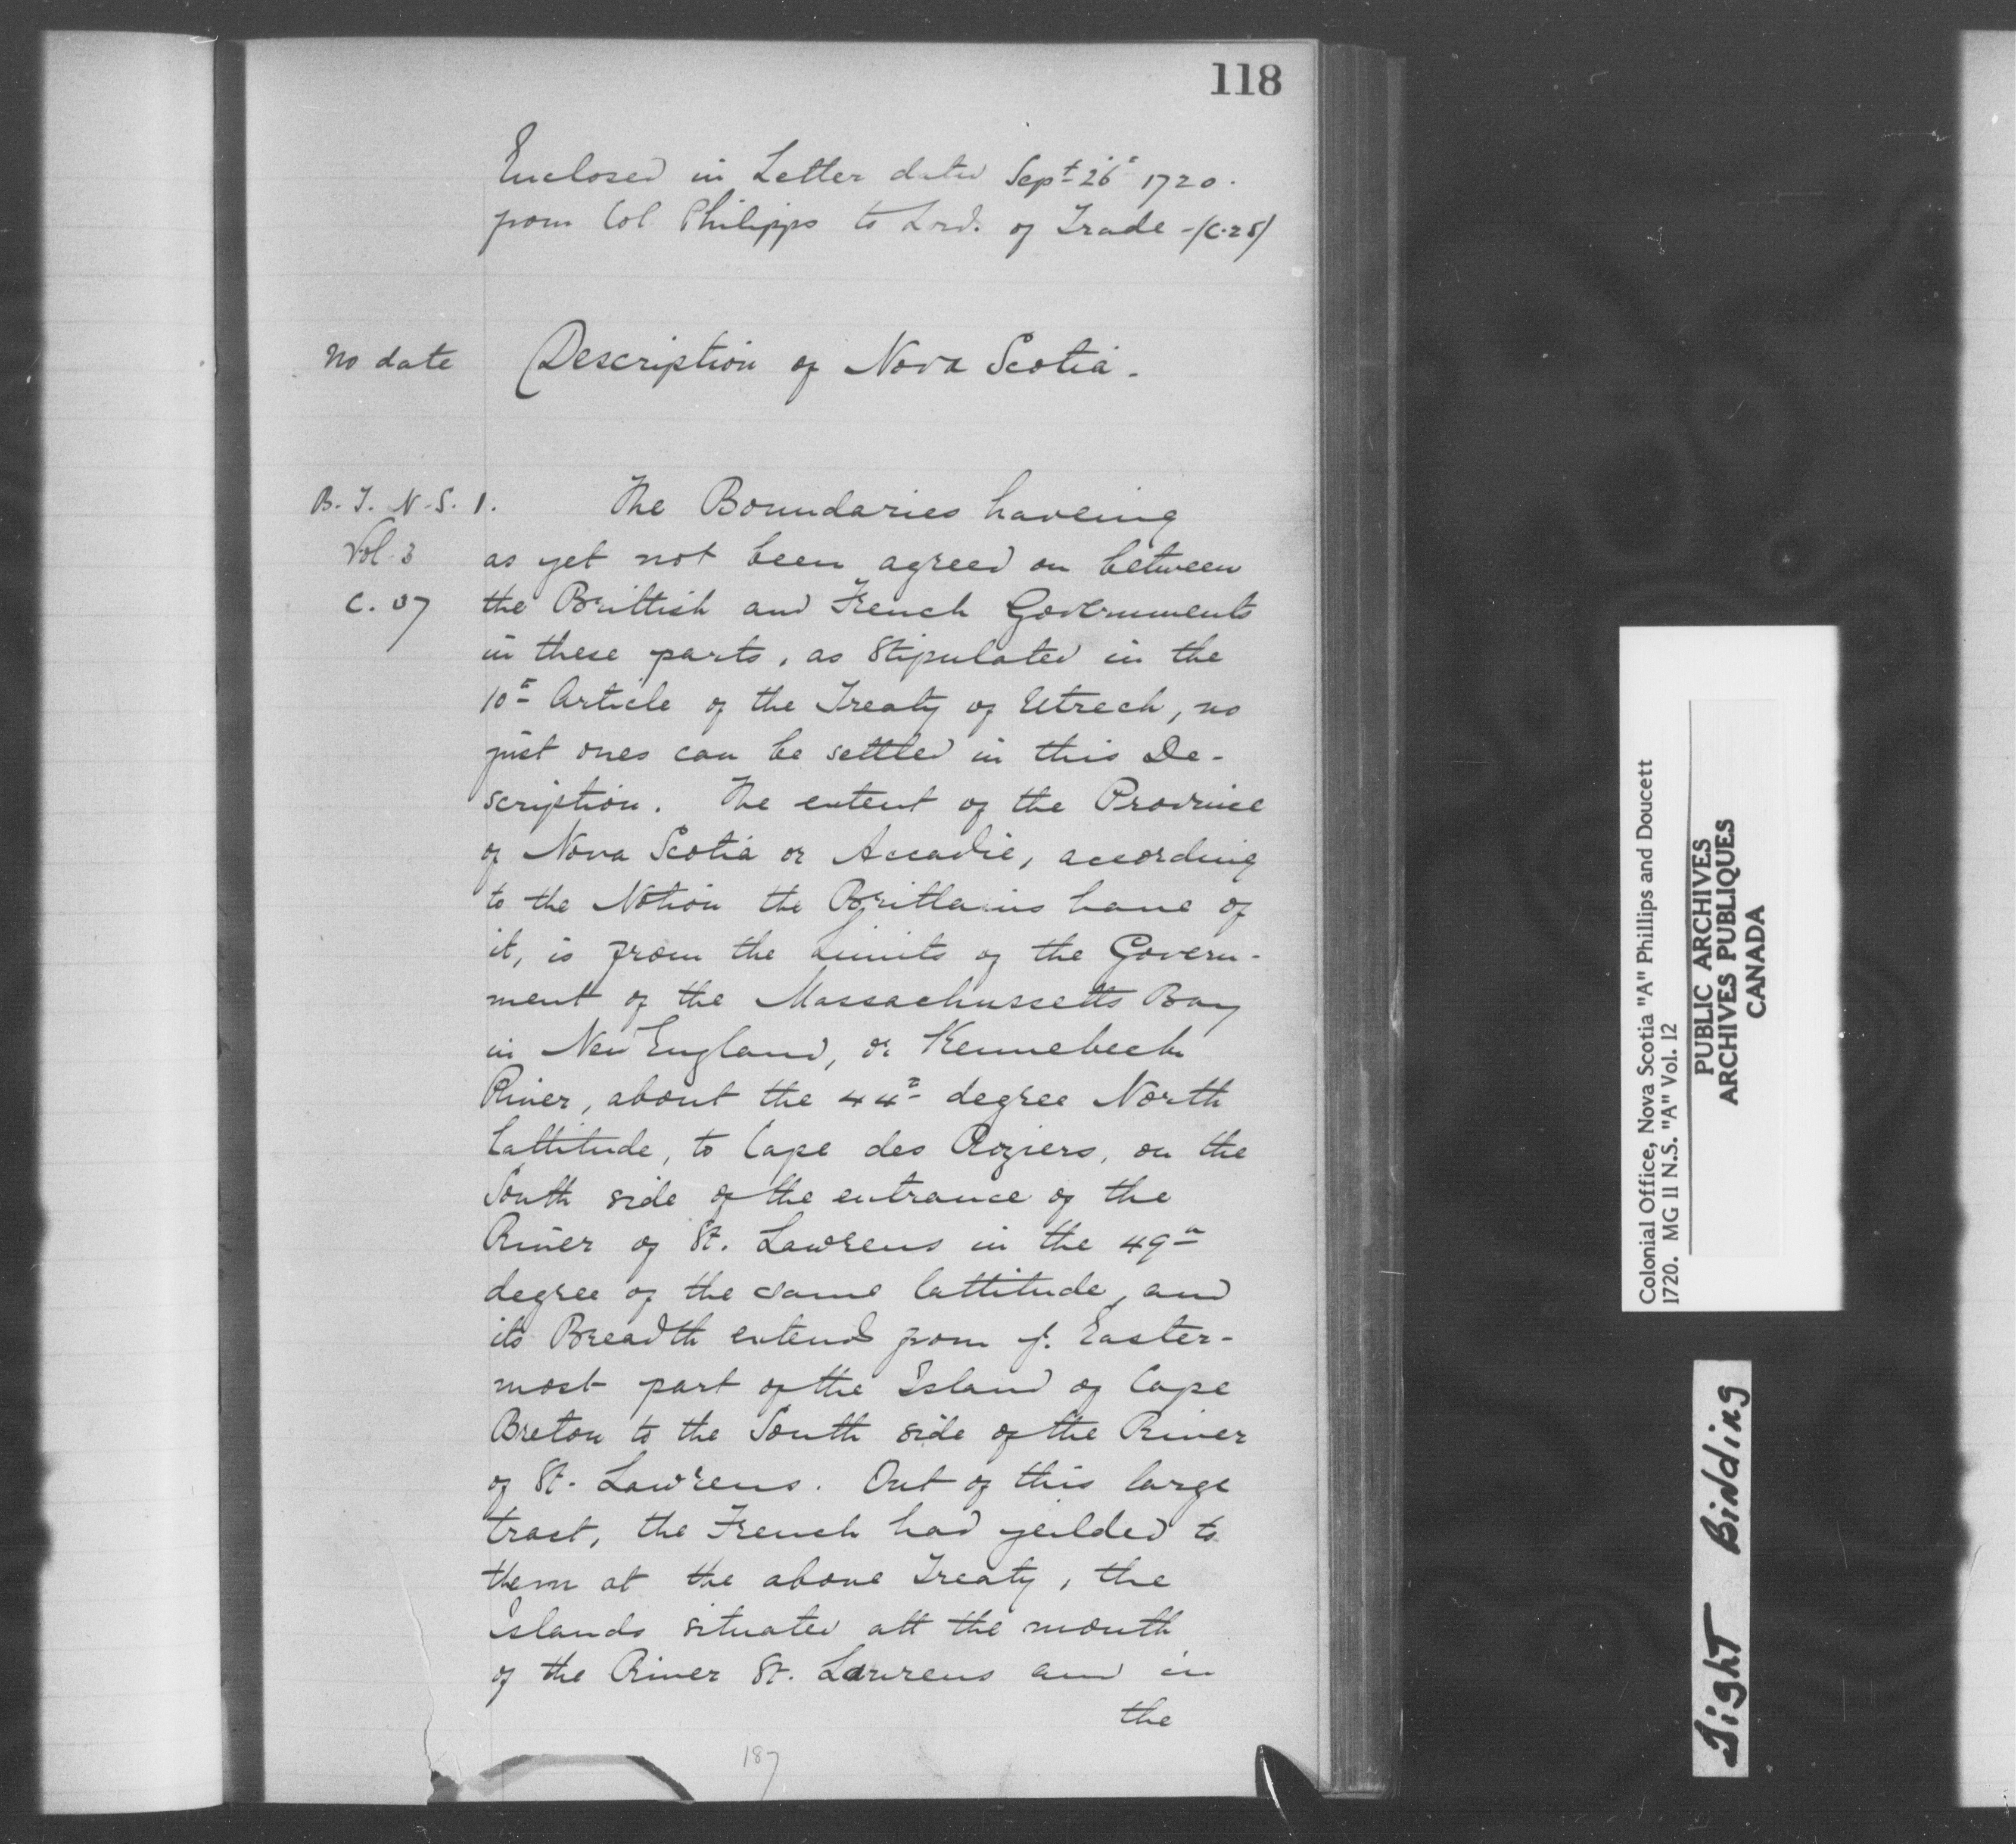 118
Enclosed in Letter dated Sept 26th 1720.
from Col Philipps to Lrds. of Trade - (C. 28)
No date
Description of Nova Scotia.
B. T. N. S. 1.
Vol. 3
C. 07
The Boundaries haveing
as yet not been agreed on between
the Brittish and French Governments
in these parts, as Stipulated in the
10th Article of the Treaty of Utrech, no
just ones can be settled in this De-
scription. The extent of the Province
of Nova Scotia or Accadie, according
to the Notion the Brittains have of
it, is from the Limits of the Govern-
ment of the Massachussetts Bay
in New England, or Kennebeck
River, about the 44th degree North
Lattitude, to Cape des Roziers, on the
South side of the entrance of the
River of St. Lawrens in the 49th
degree of the same lattitude, and
its Breadth extends from ye. Easter-
most part of the Island of Cape
Breton to the South side of the River
of St. Lawrens. Out of this large
tract, the French had yeilded to
them at the above Treaty, the
Islands situated att the mouth
of the River St. Lawrens and in
the
187
Colonial Office, Nova Scotia "A" Phillips and Doucett
1720. MG 11 N.S. "A" Vol. 12
PUBLIC ARCHIVES
ARCHIVES PUBLIQUES
CANADA
Tight Binding